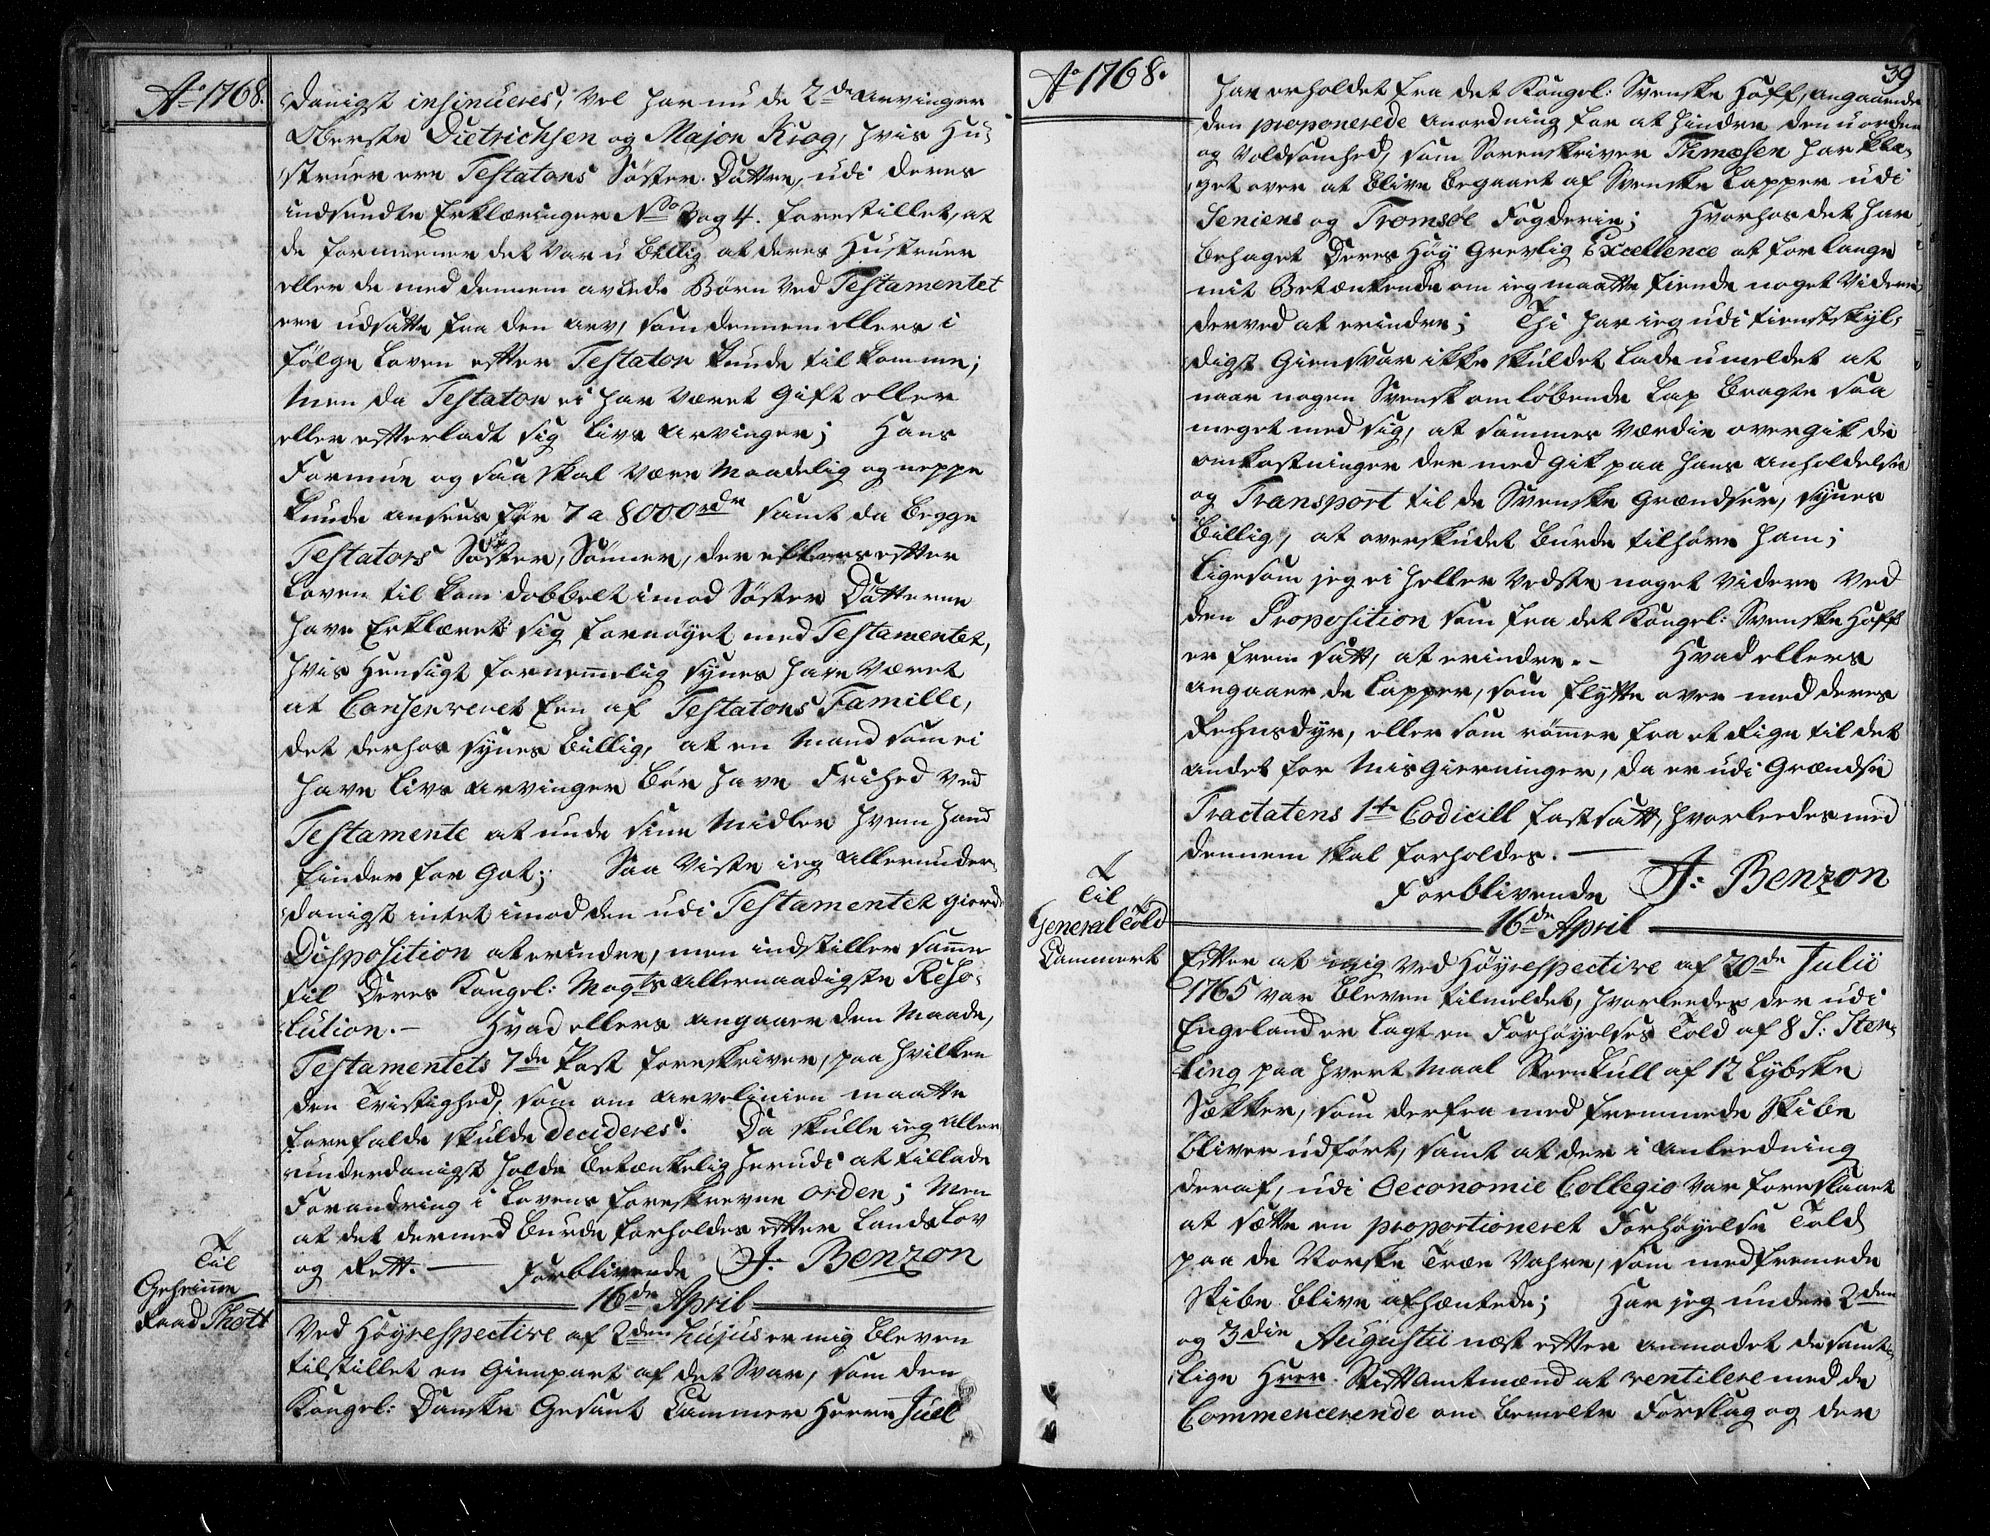 Ao 1768.
danigst insinueres, Vel har nu de 2de Arvinger
Oberste Dietrichsen og Major Krog, hvis Hu-
struer ere Testators Søster Døttre, udi deres
indsendte Erklæringer No 3 og 4. forestillet, at
de formeener det var u billig at deres Hustruer
eller de med dennem avlede Børn ved Testamentet
ere udsatte fra den Arv, som dennem ellers i
følge Loven efter Testator kunde tilkomme;
Men da Testator ei har været Gift eller
eller efterladt sig Livs Arvinger; Hans
Formue og saa skal være Maadelig og neppe
kunde ansees for 7 a 8000 rdr samt da begge
Testators Søster Sønner, der ellers efter
Loven tilkom dobbelt imod Søster Døtterne
have Erklæret sig fornøyet med Testamentet,
hvis Hensigt fornemmelig synes have været
at Conserveret Een af Testators Famille,
det derhos synes billig, at en Mand som ei
have Livs Arvinger bør have Frihed ved
Testamente at unde sine Midler hvem hand
finder for Got; Saa Viste ieg allerunder-
danigst intet imod den udi Testamentet giorde
Disposition at erindre, men indstiller samme
til Deres Kongel: Mayts Allernaadigste Reso-
lution. - Hvad ellers angaaer den Maade,
Testamentets 7de Post foreskriver, paa hvilken
den Tvistighed, som om Arvelinien maatte
forefalde skulde decideres. Da skulle ieg aller-
underdanigst holde betænkelig herudi at tillade
Forandring i Lovens foreskrevne Orden; Men
at det dermed burde forholdes efter Lands Lov
og Rett. - Forblivende J: Benzon
16de April
Til
Geheime
Raad Thott
Ved Høyrespective af 2den hujus er mig bleven
tilstillet en Gienpart af det Svar, som den
Kongel: Danske Gesant Cammer Herre Juel
Ao 1768.
39
har erholdet fra det Kongel: Svenske Hoff, angaaende
den proponerede Anordning for at hindre den uorden
og Voldsomhed, som Sorenskriver Thmæsen har kla-
get over at blive begaaet af Svenske Lapper udi
Seniens og Tromsøe Fogderie; Hvorhos det har
behaget Deres Høy Grevlig Excellence at forlange
mit Betænkende om ieg maatte fiende noget videre
derved at erindre; Thi har ieg udi tienstskyl-
digst Giensvar ikke skuldet lade umeldet at
naar nogen Svensk omløbende Lap bragte saa
meget med sig, at sammes Værdie overgik de
omkostninger der med gik paa hans anholdelse
og Transport til de Svenske Grændser, synes
billig, at overskudet burde tilhøre ham;
Ligesom jeg ei heller vedste noget videre ved
den Proposition som fra det Kongel: Svenske Hoff
er frem satt, at erindre. - Hvad ellers
angaaer de Lapper, som flytte over med deres
Rehnsdyr, eller som rømer fra et Rige til det
andet for Misgierninger, da er udi Grændse
Tractatens 1te Codicill fastsatt, hvorleedes med
dennem skal forholdes. -
Forblivende J: Benzon
16de April
Til
General Told
Cammeret
Efter at mig ved Høyrespective af 20de Julii
1765 var bleven tilmeldet, hvorleedes der udi
Engeland er lagt en Forhøyelses Told af 8 S: Ster-
ling paa hvert Maal Steenkull af 12 Lybske
Sækker, som derfra med fremmede Skibe
bliver udført, samt at der i anleedning
deraf, udi Oeconomie Collegio var foreslaaet
at sætte en proportioneret Forhøyelse Told
paa de Norske Træe Vahre, som med fremede
Skibe blive afhæntede; Har jeg under 2den
og 3die Augustii næst efter anmodet de samt-
lige Herrer Stiftamtmænd at ventilere med de
Commercerende om bemelte Forslag og der